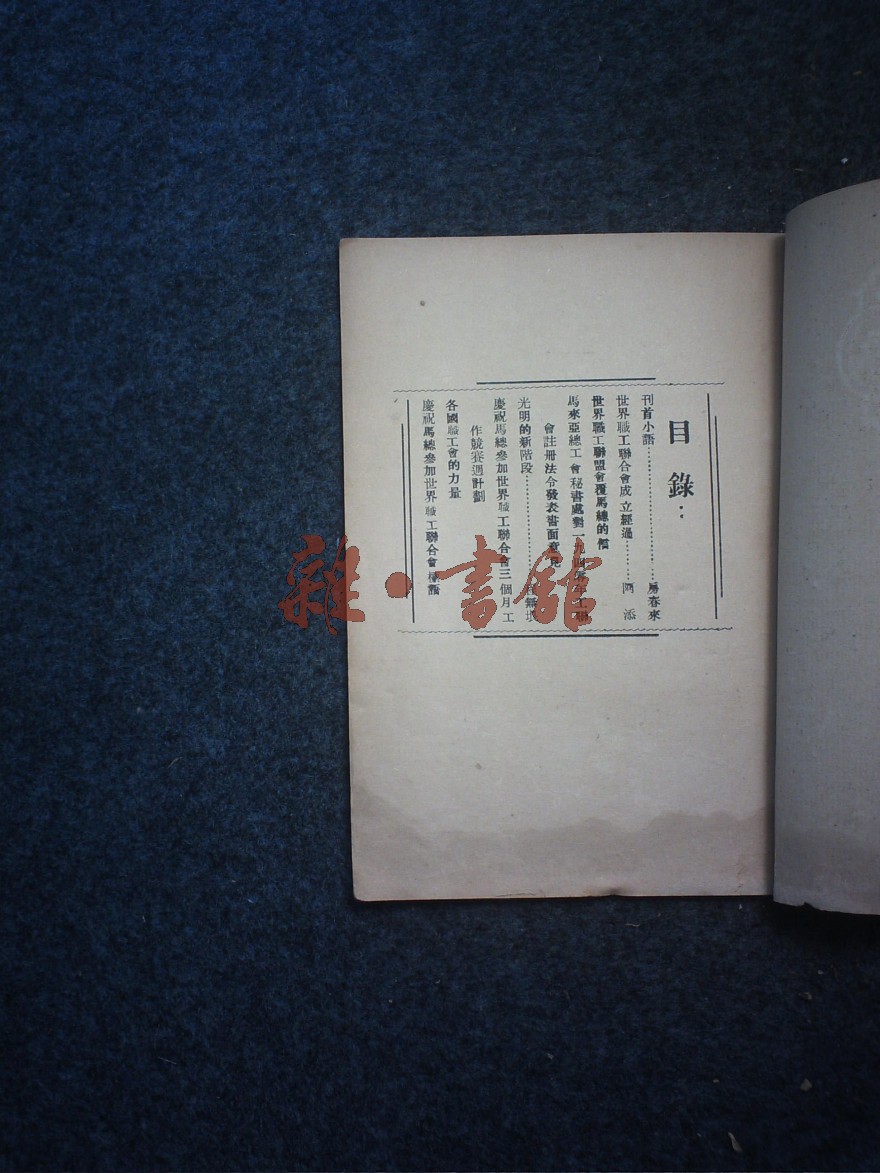 目錄：
刊首小語……………………房春來
世界職工聯合會成立經過………阿添
世界職工聯盟會覆馬總的信
馬來亞總工會秘書處對一九四零年工聯
會註冊法令發表書面意見
光明的新階段…………
慶祝馬總參加世界職工聯合會三個月工
作競賽週計劃
各國職工會的力量
慶祝馬總參加世界職工聯合會標語
雜·書館